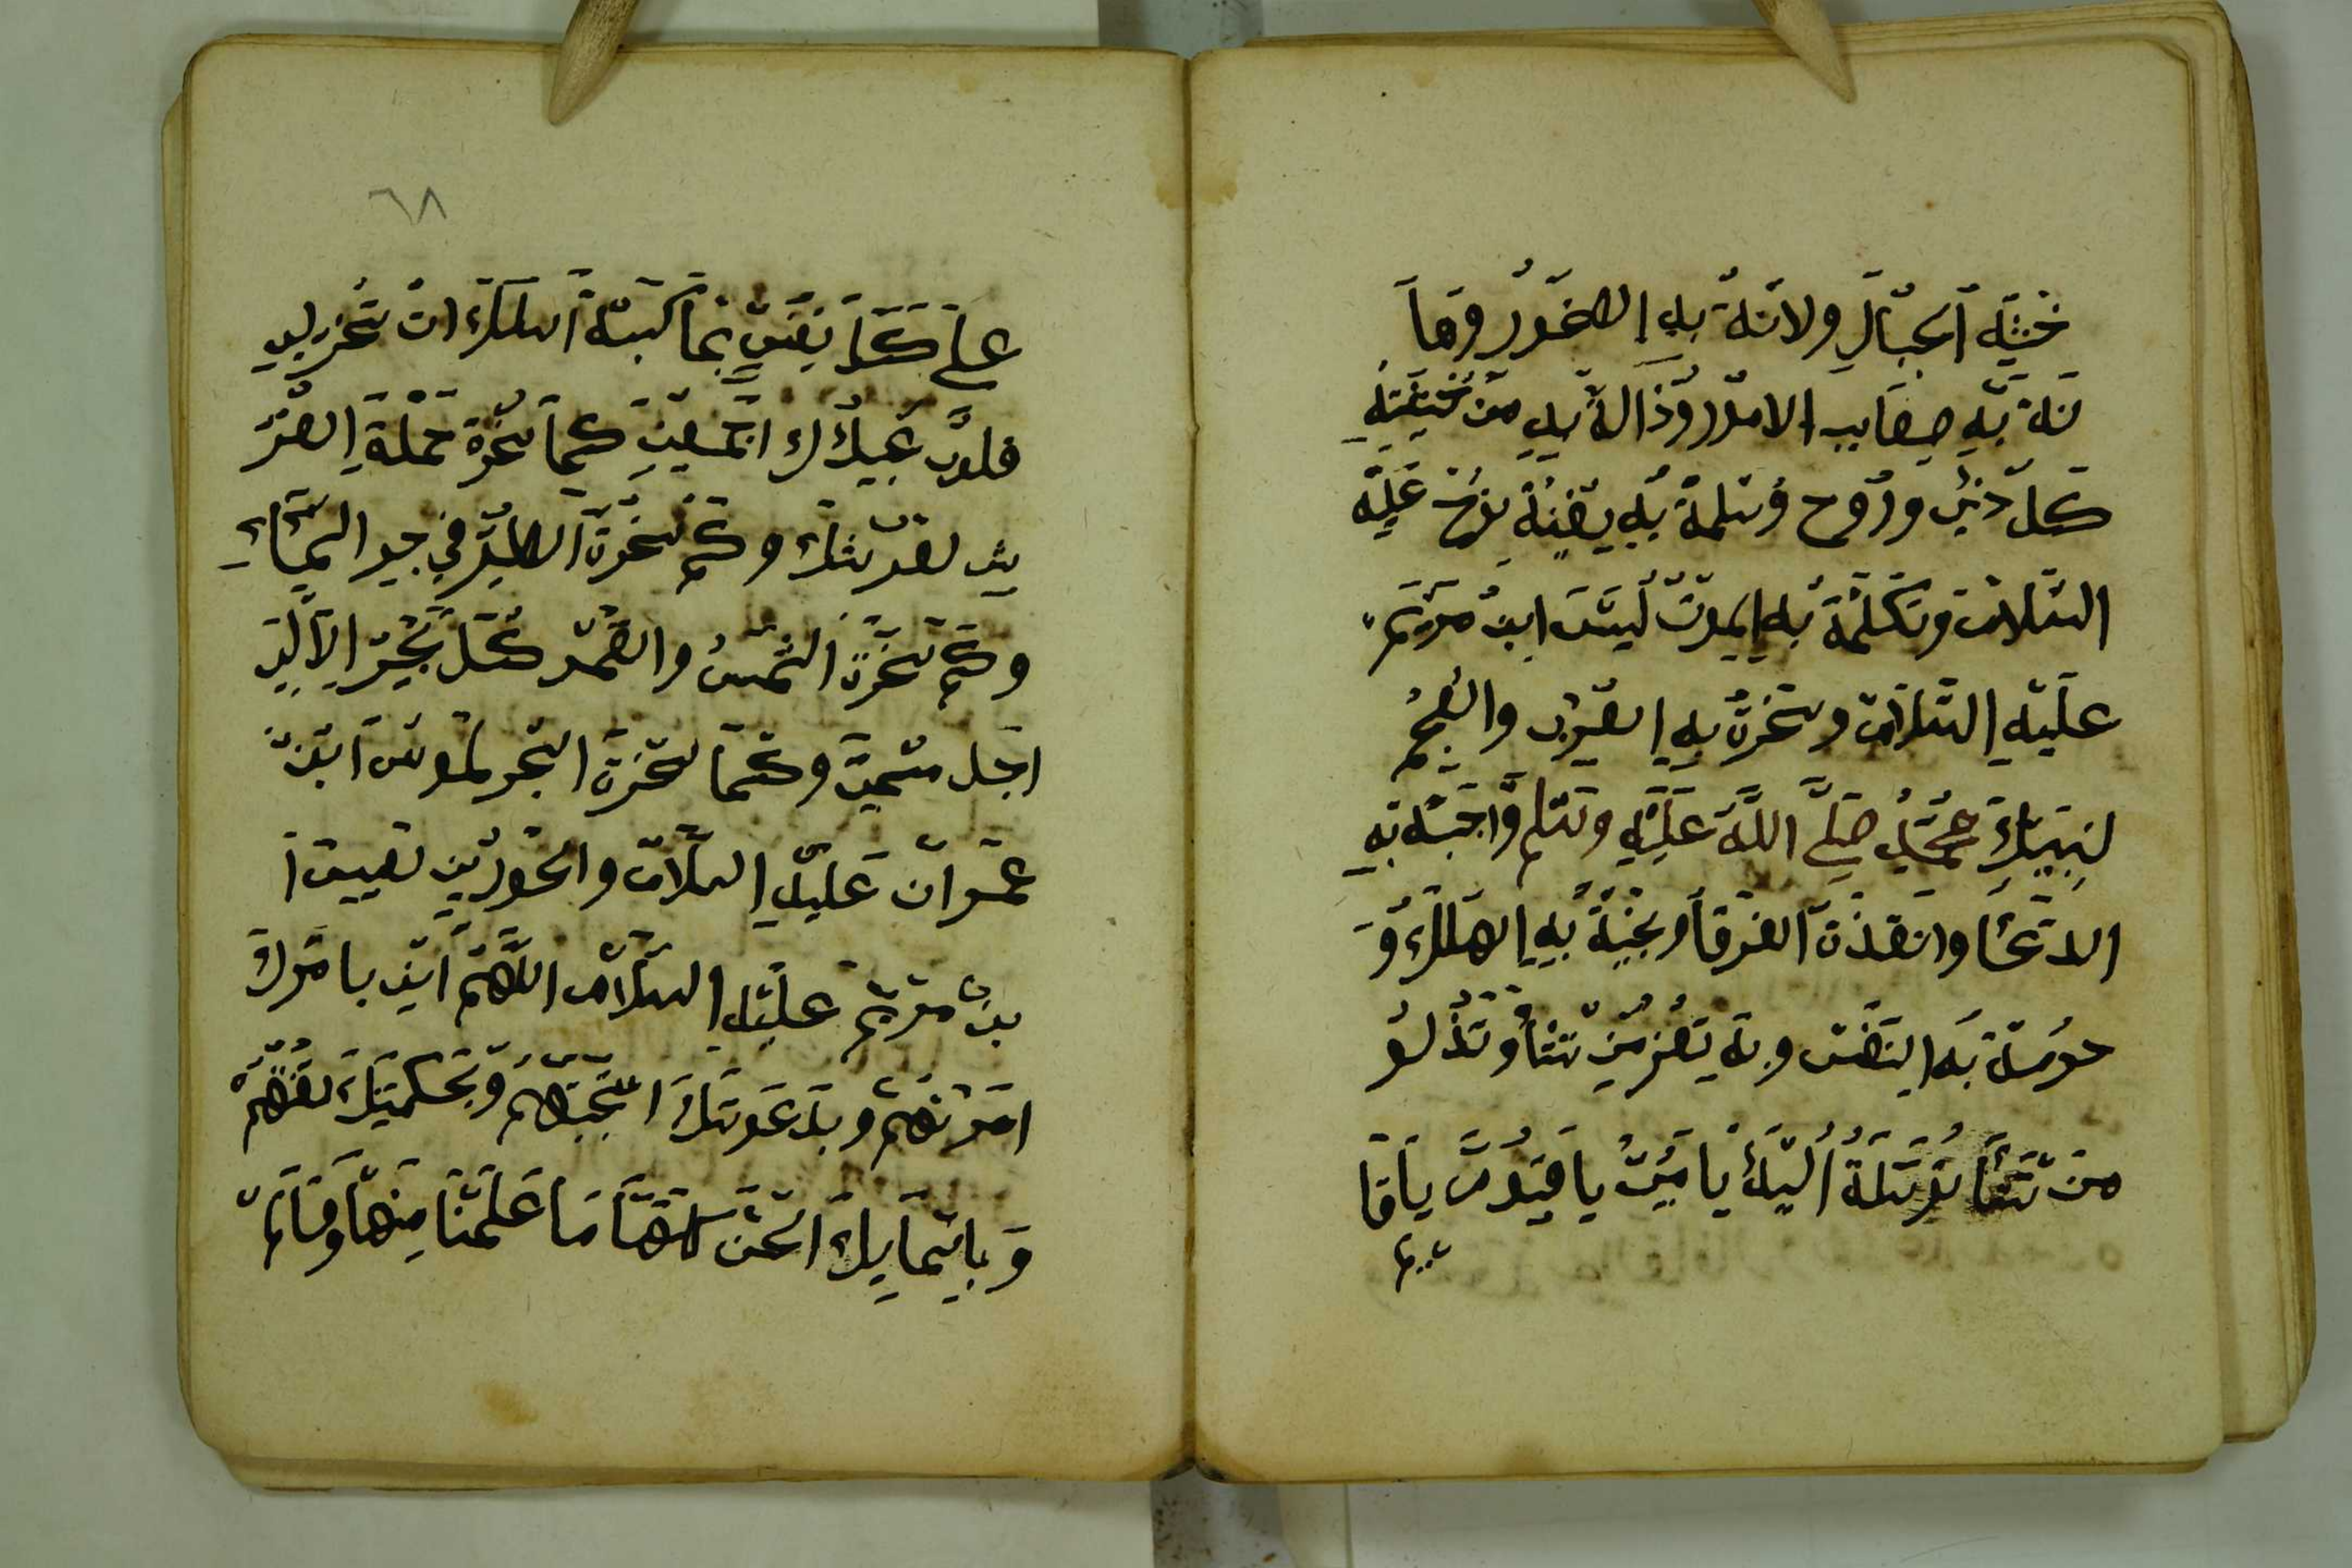 خشية الجبال ولانة به الصخور وها
نة به صعاب الامور وذالة به من خيفته
كل ذي وروح وسلمة به سفينة نوح عليه
السلام وتكلمة به الموت ليسى ابن مريم
عليه السلام وسخرة به العرب والعجم
لنبيك محمد صلى الله عليه وسلم واجبة به
الدعا وانقذة الغرقا ونجية به الهلك و
حرسة به النفس وبه تعز من تشا وتذلو
من تشا توسلة اليك يا يا قيوم يا قا
يم
٦٨
على كل نفس بما كسبة اسالك ان تسخر لي
قلوب عبيدك اجمعين كما سخرة حملة العر
ش لقدرتك وكم سخرة الطير في جو السماء
وكم سخرة الشمس والقمر كل يجر الا الي
اجل مسمى وكما سخرة البحر لموسى ابن
عمران عليه السلام والحوريين لعيسى ا
بن مريم عليه السلام اللهم اني بامرك
امرتهم وبدعوتك اجبتهم وبحكمتك
وباسمايك الحسن كلها ما علمنا منها وما لم